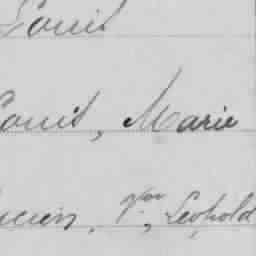 Louis
Louis, Marie
Lucien, Vor, Léopold